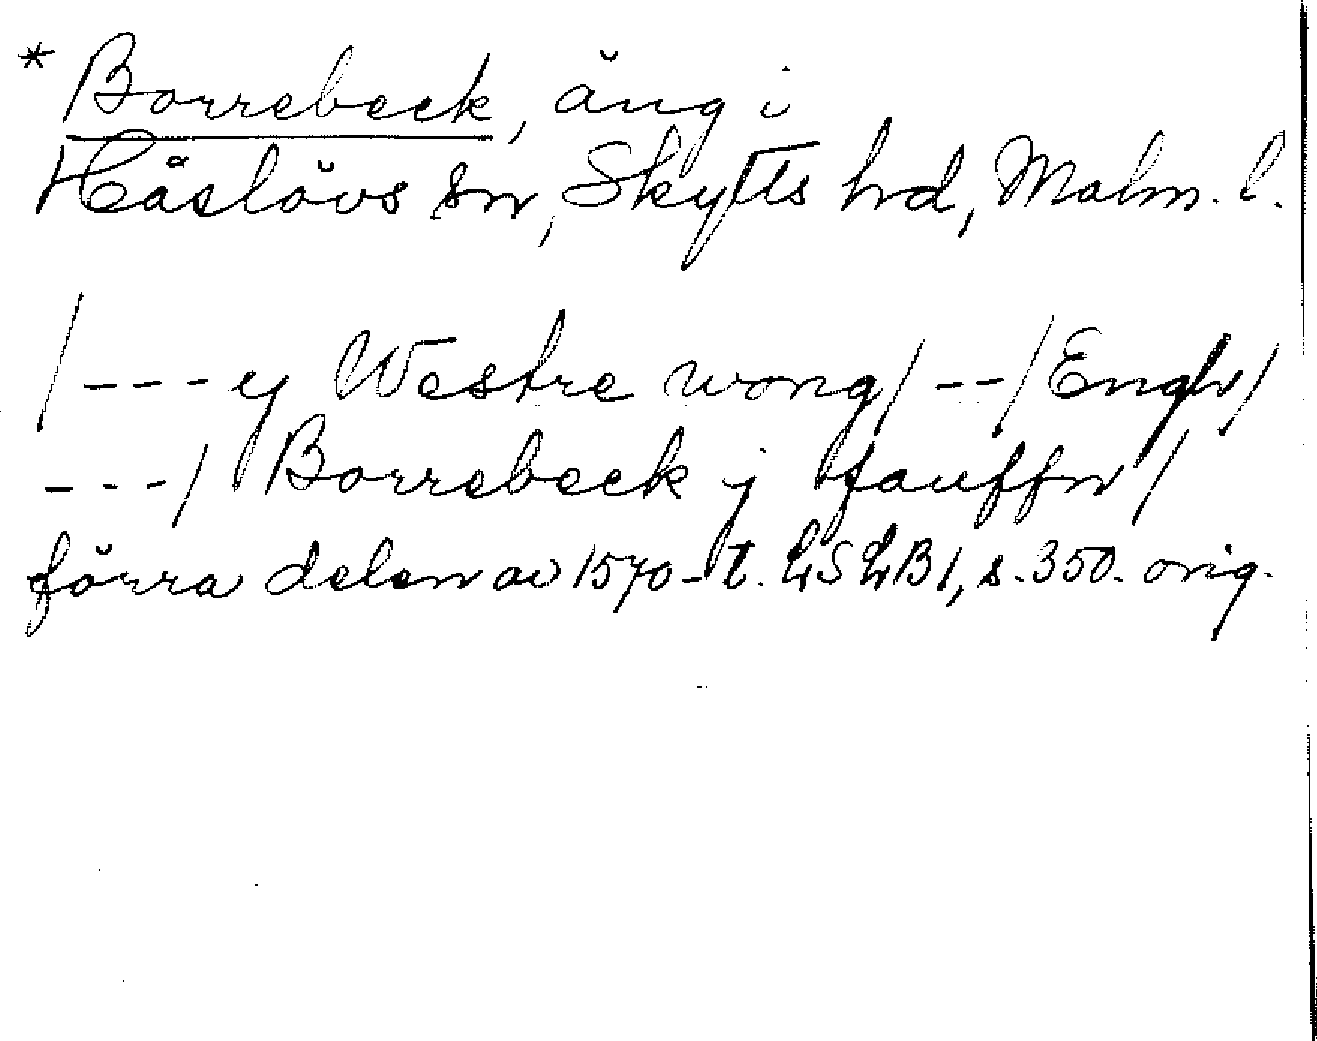 * Borrebeck, äng i
Håslövs sn, Skytts hd, Malm. l.
/---y Westre wong/--/Engh/
---/ Borrebeck j fauffn/
förra delen av 1570-t. LSLB1, s. 350. orig.